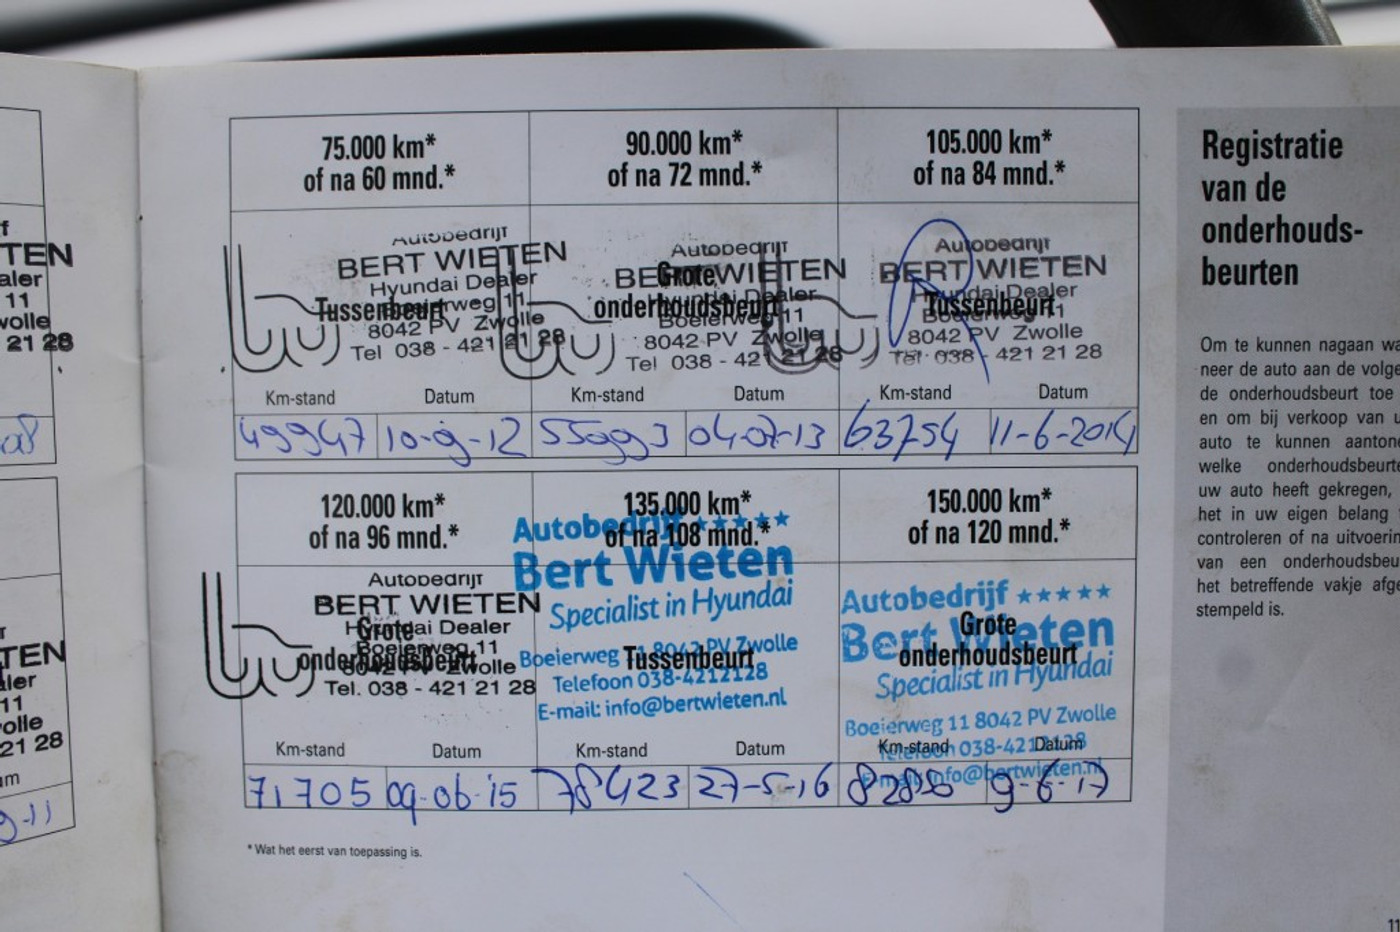 f
TEN
aler
11
wolle
21 28
08
r
TEN
aler
11
olle
21 28
m
9-11
75.000 km*
of na 60 mnd.*
Autobedrijf
BERT WIETEN
Hyundai Dealer
Tussenbeurt
Boeierweg 11
8042 PV Zwolle
Tel 038 - 421 21 28
Km-stand Datum
49947 10-9-12
90.000 km*
of na 72 mnd.*
Autobedrijf
BERT WIETEN
Grote
onderhoudsbeurt
Hyundai Dealer
Boeierweg 11
8042 PV Zwolle
Tel 038 - 421 21 28
Km-stand Datum
55993 04-07-13
105.000 km*
of na 84 mnd.*
Autobedrijf
BERT WIETEN
Hyundai Dealer
Tussenbeurt
Boeierweg 11
8042 PV Zwolle
Tel. 038 - 421 21 28
Km-stand Datum
63754 11-6-2014
120.000 km*
of na 96 mnd.*
Autobedrijf
BERT WIETEN
Hyundai Dealer
Grote
onderhoudsbeurt
Boeierweg 11
8042 PV Zwolle
Tel. 038 - 421 21 28
Km-stand Datum
71705 09-06-15
135.000 km*
of na 108 mnd.*
Autobedrijf ★★★★★
Bert Wieten
Specialist in Hyundai
Boeierweg 11 8042 PV Zwolle
Tussenbeurt
Telefoon 038-4212128
E-mail: info@bertwieten.nl
Km-stand Datum
78423 27-5-16
150.000 km*
of na 120 mnd.*
Autobedrijf ★★★★★
Bert Wieten
Grote
onderhoudsbeurt
Specialist in Hyundai
Boeierweg 11 8042 PV Zwolle
Telefoon 038-4212128
Km-stand Datum
E-mail: info@bertwieten.nl
9-6-17
* Wat het eerst van toepassing is.
Registratie
van de
onderhouds-
beurten
Om te kunnen nagaan wa
neer de auto aan de volge
de onderhoudsbeurt toe
en om bij verkoop van u
auto te kunnen aantone
welke onderhoudsbeurte
uw auto heeft gekregen,
het in uw eigen belang
controleren of na uitvoerin
van een onderhoudsbeu
het betreffende vakje afge
stempeld is.
11